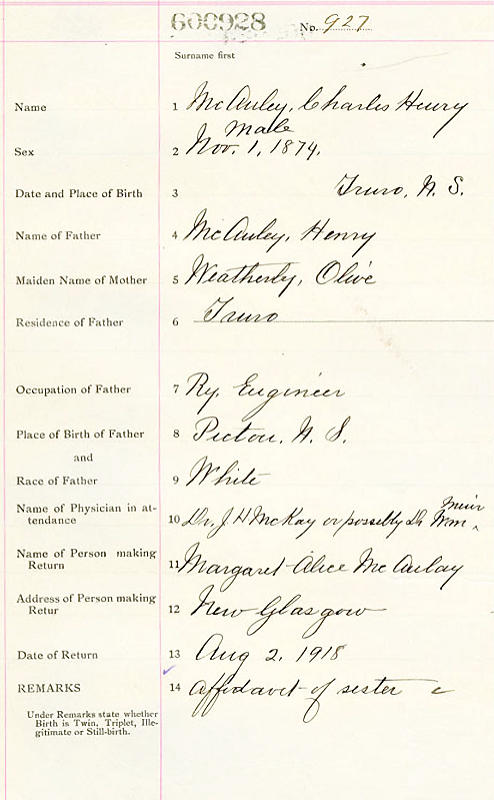 600928 No. 927
Surname first
Name 1 McAuley, Charles Henry
Male
Sex 2 Nov. 1, 1874.
Date and Place of Birth 3 Truro, N. S.
Name of Father 4 McAuley, Henry
Maiden Name of Mother 5 Weatherly, Olive
Residence of Father 6 Truro
Occupation of Father 7 Ry. Engineer
Place of Birth of Father 8 Pictou, N. S.
and
Race of Father 9 White
Name of Physician in at-
tendance 10 Dr. J H McKay or possibly Dr Wm ^ Muir
Name of Person making
Return 11 Margaret Alice McAulay
Address of Person making
Retur 12 New Glasgow
Date of Return 13 Aug 2, 1918
REMARKS 14 Affidavit of sister
Under Remarks state whether
Birth is Twin, Triplet, Ille-
gitimate or Still-birth.